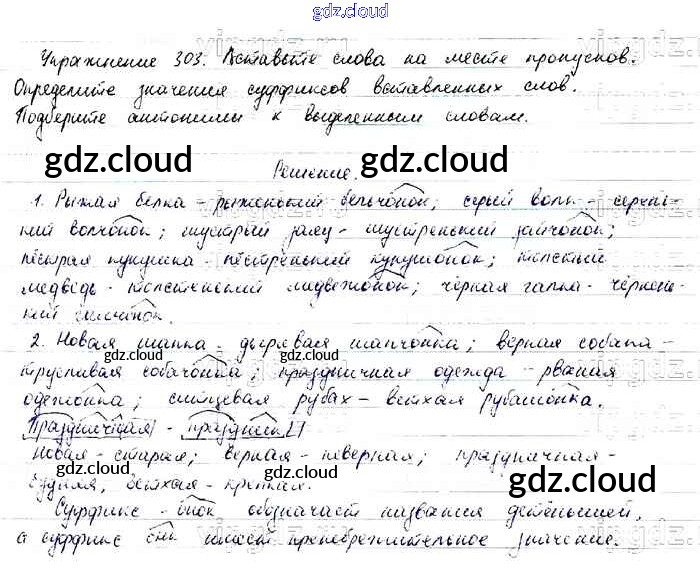 gdz.cloud
Упражнение 303. Вставьте слова на месте пропусков.
Определите значения суффиксов вставленных слов.
Подберите антонимы к выделенным словам.
gdz.cloud gdz.cloud
Решение.
1. Рыжая белка - рыженький бельчонок; серый волк - серень-
кий волчонок; шустрый заяц - шустренький зайчонок;
пёстрая кукушка - пёстренький кукушонок; толстый
медведь - толстенький медвежонок; чёрная галка - чёрнень-
кий галчонок.
2. Новая шапка - дырявая шапчонка; верная собака -
gdz.cloud gdz.cloud
трусливая собачонка; праздничная одежда - рваная
одежонка; ситцевая рубах - ветхая рубашонка.
Праздничная - праздник
Новая - старая; верная - неверная; праздничная -
gdz.cloud
будняя, ветхая - крепкая.
Суффикс - онок обозначает названия детёнышей,
gdz.cloud
а суффикс онк имеет пренебрежительное значение.
gdz.cloud